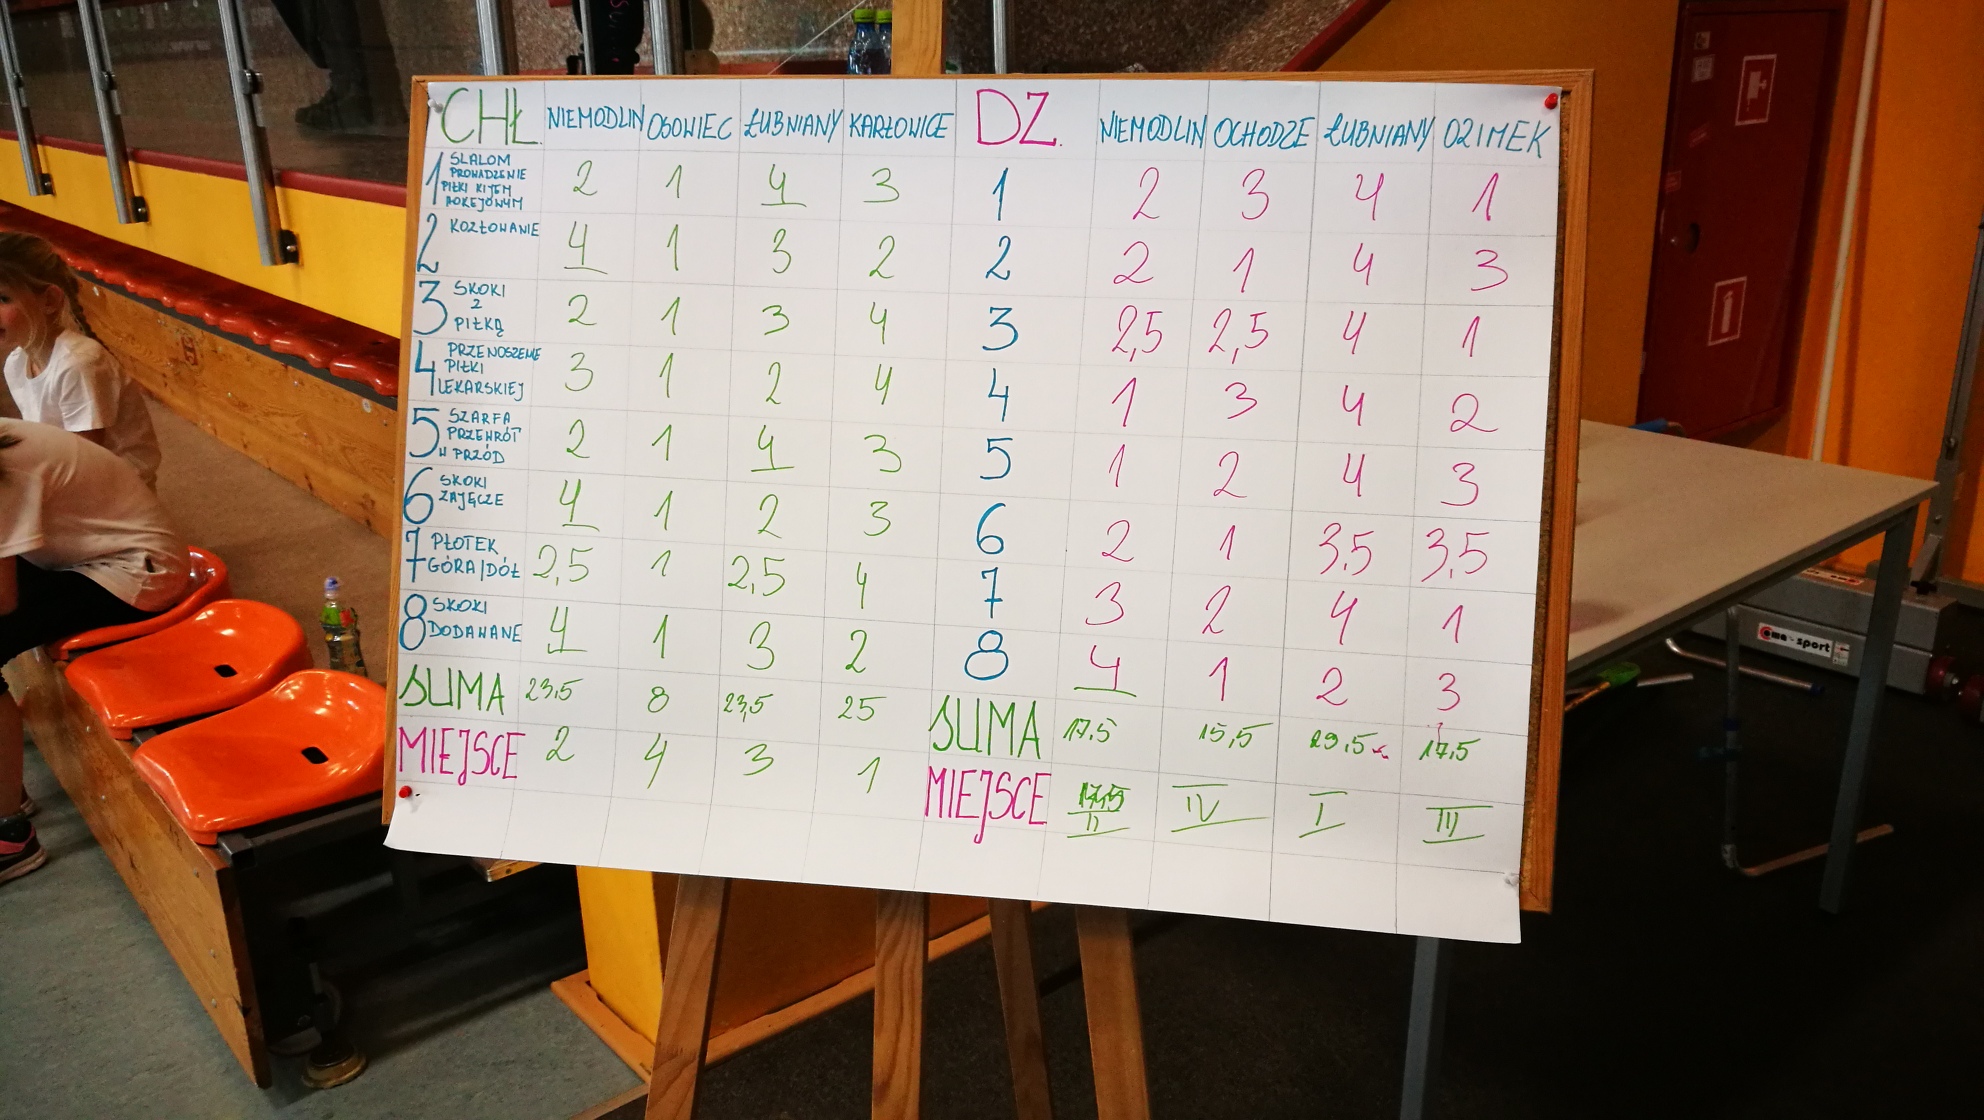 CHŁ. NIEMODLIN OSOWIEC ŁUBNIANY KARŁOWICE DZ. NIEMODLIN OCHODZE ŁUBNIANY OZIMEK
1 SLALOM PROWADZENIE PIŁKI KIJEM HOKEJOWYM 2 1 4 3 1 2 3 4 1
2 KOZŁOWANIE 4 1 3 2 2 2 1 4 3
3 SKOKI Z PIŁKĄ 2 1 3 4 3 2,5 2,5 4 1
4 PRZENOSZENIE PIŁKI LEKARSKIEJ 3 1 2 4 4 1 3 4 2
5 SZARFA PRZEWRÓT W PRZÓD 2 1 4 3 5 1 2 4 3
6 SKOKI ZAJĘCZE 4 1 2 3 6 2 1 3,5 3,5
7 PŁOTEK GÓRA/DÓŁ 2,5 1 2,5 4 7 3 2 4 1
8 SKOKI DODAWANE 4 1 3 2 8 4 1 2 3
SUMA 23,5 8 23,5 25 SUMA 17,5 15,5 29,5 17,5
MIEJSCE 2 4 3 1 MIEJSCE II IV I III
coma-sport